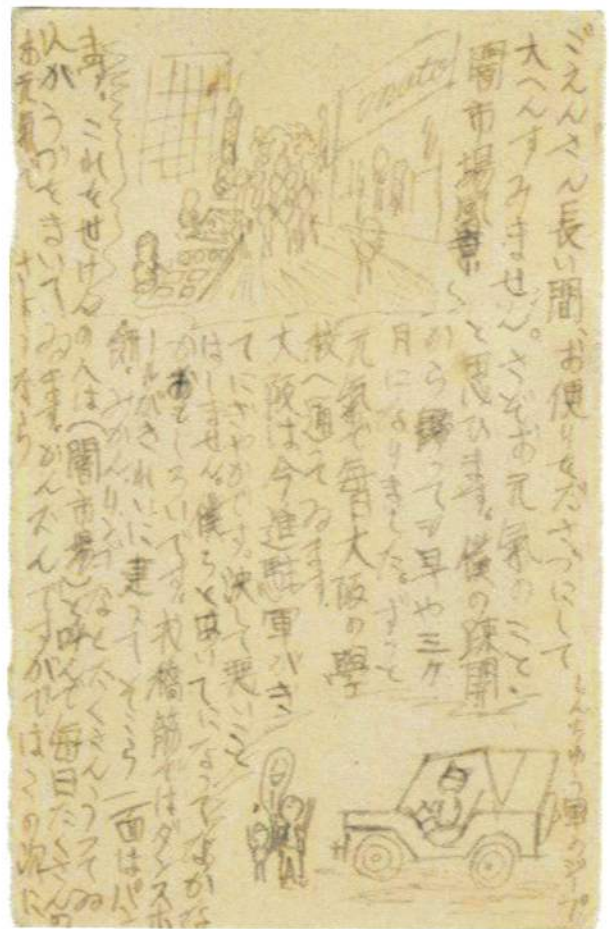 ごえんさん長い間、お便りをださづにして
大へんすみません。さぞお元氣のこと、
と思ひます。僕の疎開
から歸っても早や三ケ
月になりました。ずっと
元氣で毎日大阪の學
校へ通ってゐます。
大阪は今進駐軍がき
てにぎやかです。決して悪いこと
はしません。僕らと
おもしろいです。戎橋筋ではダンスホ
ールがきれいに建って そこら一面はパン
みかん、りんごなどたくさんうってゐ
ます。これをせけんの人は(闇市場)と呼んで毎日たくさんの
人がうづをまいてゐます。かんたんですがではこの次に
お元氣で さようなら
闇市場風景
しんちゅう軍のジープ